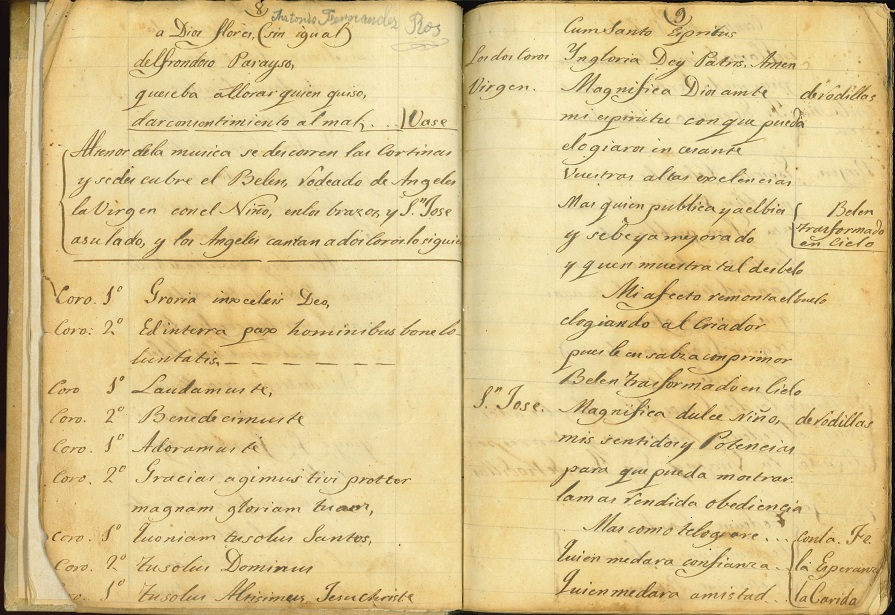 8
Antonio Fernandez Ros
a Dios flores, (sin igual)
del frondoso Parayso,
que seba allorar quien quiso,
dar consentimiento al mal, ... Vase
Alsenor de la musica se descorren las Cortinas
y se descubre el Belen, rodeado de Angeles
la Virgen con el Niño, en los brazos, y Sn Jose
asu lado, y los Angeles cantan a dos coros lo siguie
Coro. 1º Groria inxcelsis Deo,
Coro: 2º Ed in terra pax hominibus bone bo
luntatis. — — — — — —
Coro 1º Laudamuste,
Coro. 2º Benedecimuste
Coro. 1º Adoramuste
Coro. 2º Gracias agimus tivi protter
magnam gloriam tuam,
Coro. 1º Quoniam tusolus Santos,
Coro. 2º tusolus Dominus
Coro. 1º tusolus Altisimus Jesuchriste
9
Cum Santo Espiritus
Los dos Coros Yngloria Dey Patris. Amen
Virgen. Magnifica Dios amte de rodillas
mi espiritu con que pueda
elogiaros incesante
Vuestras altas exelencias
Mas quien publica yaelbia Belen
y sebe ya mejorado trasformado
en Cielo
y quen muestra tal desbelo
Mi afecto remonta el buelo
elogiando al Criador
pues le ensalza con primor
Belen trasformado en Cielo
Sn Jose. Magnifica dulce Niño, de rodillas
mis sentidos y Potencias
para que pueda mostrar
la mas rendida obediencia
Mas como telograre ... con la. Fe.
Quien medara confianza .. la Esperanz
Quien medara amistad .. la Carida